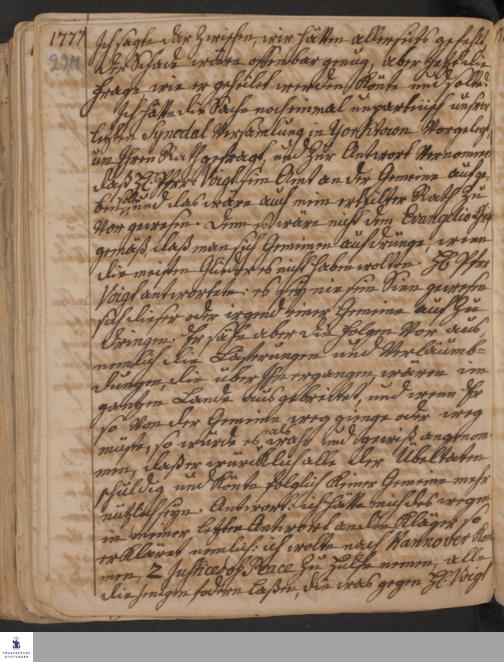 1777
Ich sagte darzwischen, wir hätten allerseits gefehlt
der Schade wäre offenbar genug, aber jetzt die
Frage wie er geheilet werden könte und solte.
Ich hätte die Sache noch einmal unpartheiisch unserer
letzten Synodal Versamlung in York Town vorgelegt
um Ihren Rath gefragt, und zur Antwort vernommen
daß H. Pfr Voigt sein Amt an der Gemeine aufge-
ben und das wäre auch mein ertheilter Rath zu
vor gewesen. Denn es wäre nicht dem Evangelio
gemäß, daß man sich Gemeinen aufdringe, wenn
die meisten Glieder es nicht haben wolten. H. Pfr
Voigt antwortete: es sey nie sein Sinn gewesen
sich dieser oder irgend einer Gemeine auf zu
dringen. Er sähe aber die Folgen vor aus,
nemlich die Lästerungen und Verläumb-
dungen, die über Ihn ergangen, wären im
gantzen Lande ausgebreitet, und wenn Er
so von der Gemeine weg ginge oder weg
müste, so würde es als wahr und gewiß angenom-
men, daß er würcklich alle der Übelthaten
schuldig und könte folglich keiner Gemeine mehr
nützlich seyn. Antwort: ich hätte mich deswegen
in meiner letzten Antwort an die Kläger so
erkläret nemlich: ich wolte nach Hannover kom
men, 2 Justices of Peace zu Hülfe nemen, alle
diejenigen fodern laßen, die was gegen H. Voigt
FRANCKESCHE
STIFTUNGEN